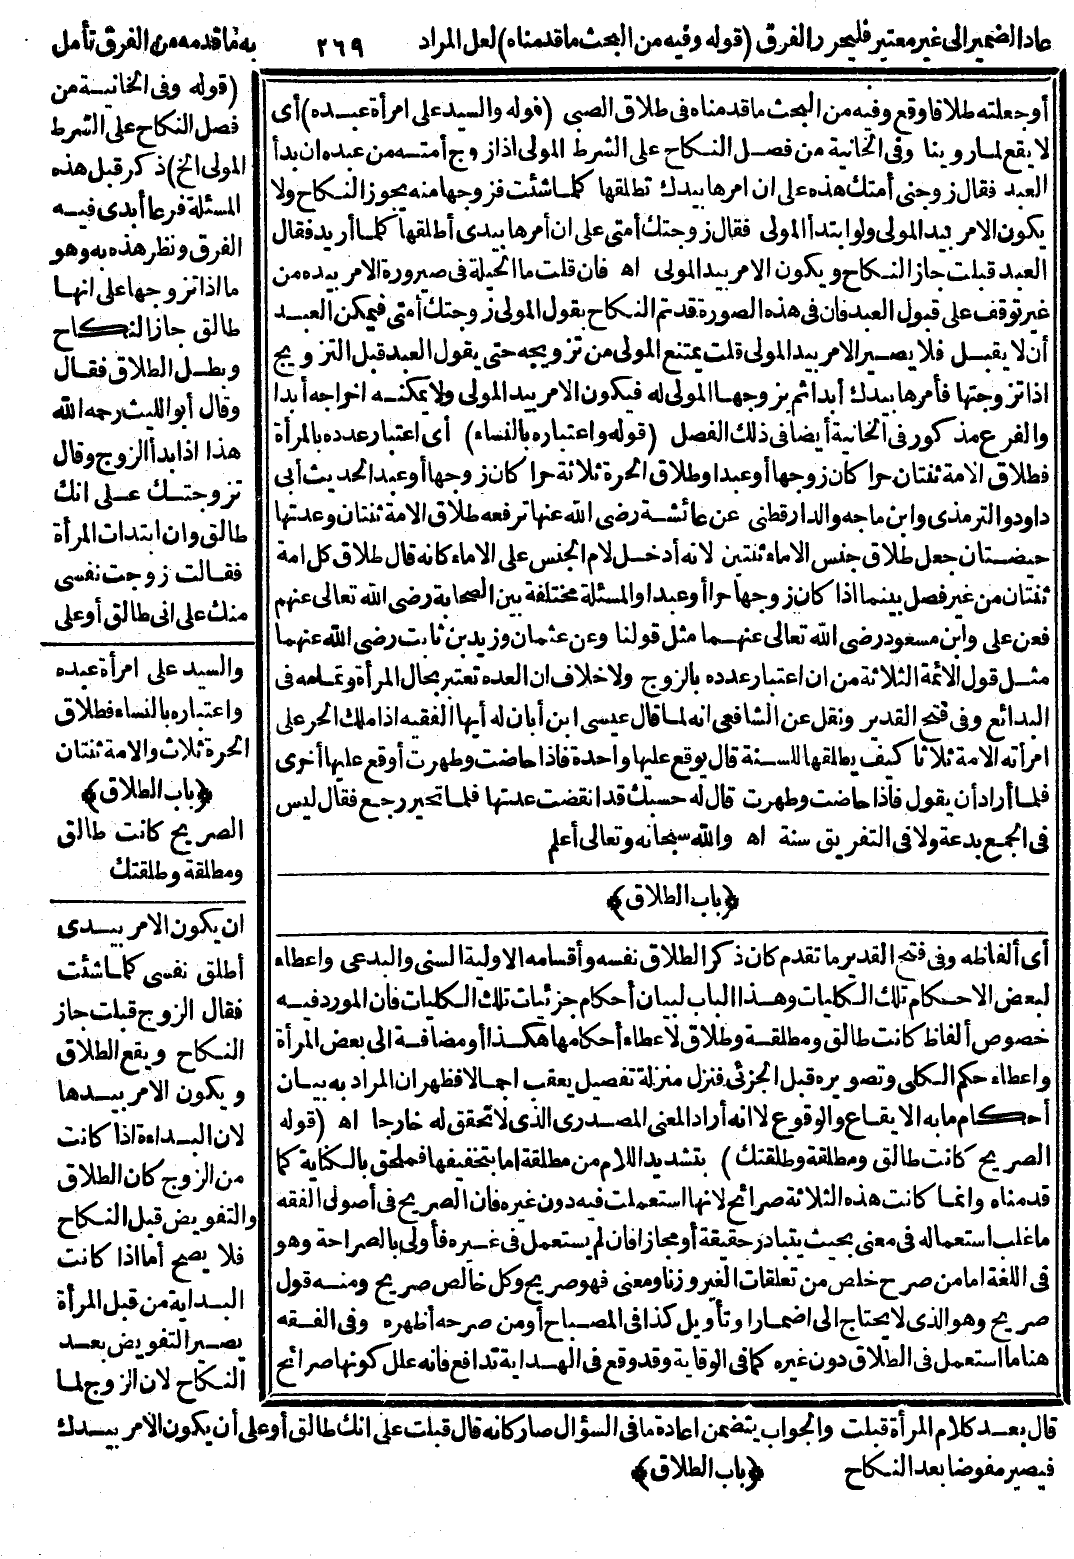 عاد الضمير الى غير معتبر فليحرر الفرق (قوله وفيه من البحث ما قدمناه) لعل المراد ٢٦٩ به ما قدمه من الفرق تأمل
أو جعلته طلاقا وقع وفيه من البحث ما قدمناه فى طلاق الصبي (قوله والسيد على امرأة عبده) أى
لا يقع لما روينا وفى الخانية من فصل النكاح على الشرط المولى اذا زوج أمته من عبده ان بدأ
العبد فقال زوجنى أمتك هذه على ان امرها بيدك تطلقها كلما شئت فزوجها منه يجوز النكاح ولا
يكون الامر بيد المولى ولو ابتدأ المولى فقال زوجتك أمتى على ان أمرها بيدى أطلقها كلما أريد فقال
العبد قبلت جاز النكاح ويكون الامر بيد المولى اه فان قلت ما الحيلة فى صيرورة الامر بيده من
غير توقف على قبول العبد فان فى هذه الصورة قد تم النكاح بقول المولى زوجتك أمتى فيمكن العبد
أن لا يقبل فلا يصير الامر بيد المولى قلت يمتنع المولى من تزويجه حتى يقول العبد قبل التزويج
اذا تزوجتها فأمرها بيدك أبدا ثم يزوجها المولى له فيكون الامر بيد المولى ولا يمكنه اخراجه أبدا
والفرع مذكور فى الخانية أيضا فى ذلك الفصل (قوله واعتباره بالنساء) أى اعتبار عدده بالمرأة
فطلاق الامة ثنتان حرا كان زوجها أو عبدا وطلاق الحرة ثلاثة حرا كان زوجها أو عبد الحديث أبى
داود والترمذى وابن ماجه والدارقطنى عن عائشة رضى الله عنها ترفعه طلاق الامة ثنتان وعدتها
حيضتان جعل طلاق جنس الاماء ثنتين لانه أدخل لام الجنس على الاماء كانه قال طلاق كل امة
ثنتان من غير فصل بينما اذا كان زوجها حرا أو عبدا والمسئلة مختلفة بين الصحابة رضى الله تعالى عنهم
فعن على وابن مسعود رضى الله تعالى عنهما مثل قولنا وعن عثمان وزيد بن ثابت رضى الله عنهما
مثل قول الائمة الثلاثة من ان اعتبار عدده بالزوج ولا خلاف ان العدة تعتبر بحال المرأة وتمامه فى
البدائع وفى فتح القدير ونقل عن الشافعى انه لما قال عيسى ابن أبان له أيها الفقيه اذا ملك الحر على
امرأته الامة ثلاثا كيف يطلقها للسنة قال يوقع عليها واحدة فاذا حاضت وطهرت أوقع عليها أخرى
فلما أراد أن يقول فاذا حاضت وطهرت قال له حسبك قد انقضت عدتها فلما تحير رجع فقال ليس
فى الجمع بدعة ولا فى التفريق سنة اه والله سبحانه وتعالى أعلم
﴿باب الطلاق﴾
أى ألفاظه وفى فتح القدير ما تقدم كان ذكر الطلاق نفسه وأقسامه الاولية السنى والبدعى واعطاء
لبعض الاحكام تلك الكليات وهذا الباب لبيان أحكام جزئيات تلك الكليات فان المورد فيه
خصوص ألفاظ كانت طالق ومطلقة وطلاق لاعطاء أحكامها هكذا أو مضافة الى بعض المرأة
واعطاء حكم الكلى وتصويره قبل الجزئى فنزل منزلة تفصيل يعقب اجمالا فظهر ان المراد به بيان
أحكام ما به الايقاع والوقوع لا انه أراد المعنى المصدرى الذى لا تحقق له خارجا اه (قوله
الصريح كانت طالق ومطلقة وطلقتك) بتشديد اللام من مطلقة اما بتخفيفها فملحق بالكناية كما
قدمناه وانما كانت هذه الثلاثة صرائح لانها استعملت فيه دون غيره فان الصريح فى أصول الفقه
ما غلب استعماله فى معنى بحيث يتبادر حقيقة أو مجازا فان لم يستعمل فى غيره فأولى بالصراحة وهو
فى اللغة اما من صرح خلص من تعلقات الغير وزنا ومعنى فهو صريح وكل خالص صريح ومنه قول
صريح وهو الذى لا يحتاج الى اضمار او تأويل كذا فى المصباح أو من صرحه أظهره وفى الفقه
هنا ما استعمل فى الطلاق دون غيره كما فى الوقاية وقد وقع فى الهداية تدافع فانه علل كونها صرائح
(قوله وفى الخانية من
فصل النكاح على الشرط
المولى الخ) ذكر قبل هذه
المسئلة فرعا أبدى فيه
الفرق ونظر هذه به وهو
ما اذا تزوجها على انها
طالق جاز النكاح
وبطل الطلاق فقال
وقال أبو الليث رحمه الله
هذا اذا بدأ الزوج وقال
تزوجتك على انك
طالق وان ابتدات المرأة
فقالت زوجت نفسى
منك على انى طالق أو على
والسيد على امرأة عبده
واعتباره بالنساء فطلاق
الحرة ثلاث والامة ثنتان
﴿باب الطلاق﴾
الصريح كانت طالق
ومطلقة وطلقتك
ان يكون الامر بيدى
أطلق نفسى كلما شئت
فقال الزوج قبلت جاز
النكاح ويقع الطلاق
ويكون الامر بيدها
لان البداءة اذا كانت
من الزوج كان الطلاق
والتفويض قبل النكاح
فلا يصح أما اذا كانت
البداية من قبل المرأة
يصير التفويض بعد
النكاح لان الزوج لما
قال بعد كلام المرأة قبلت والجواب يتضمن اعادة ما فى السؤال صار كانه قال قبلت على انك طالق أو على أن يكون الامر بيدك
فيصير مفوضا بعد النكاح ﴿باب الطلاق﴾